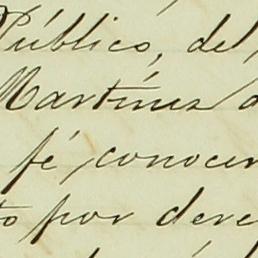 Público, del
Martínez d
fé, conocer
to por dere